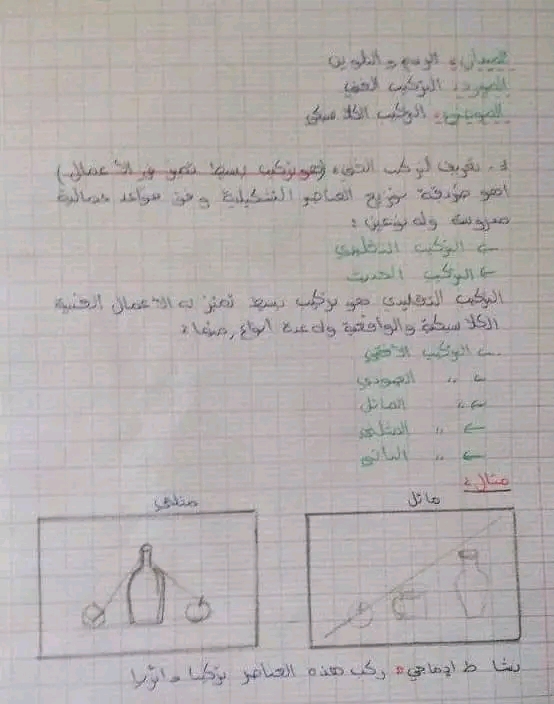 الميدان: الرسم والتلوين
المورد: التركيب الفني
الموضوع: التركيب الكلاسيكي
1- تعريف التركيب الفني: (هو تركيب بسيط تتميز به الأعمال)
هو طريقة توزيع العناصر التشكيلية وفق قواعد جمالية
مدروسة وله نوعين:
← التركيب التقليدي
← التركيب الحديث
التركيب التقليدي هو تركيب بسيط تتميز به الأعمال الفنية
الكلاسيكية والواقعية وله عدة أنواع, منها:
← التركيب الأفقي
← " العمودي
← " المائل
← " المثلثي
← " الدائري
مثال:
مائل
مثلثي
نشاط إدماجي: ركب هذه العناصر تركيبا دائريا